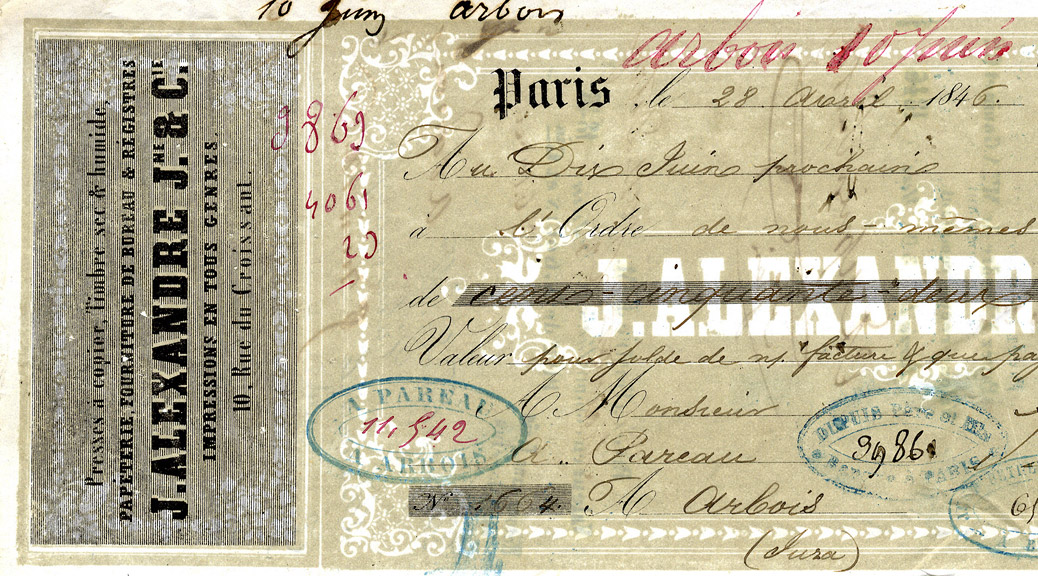 10 Juin Arbois
arbois 10 juin
Presses à copier, Timbre sec & humide,
PAPETERIE, FOURNITURE DE BUREAU & RÉGISTRES
J. ALEXANDRE JNE & CIE.
IMPRESSIONS EN TOUS GENRES.
10, Rue du Croissant.
Paris, le 28 Avril 1846.
9869
4061
Au Dix Juin prochain
à l'Ordre de nous-mêmes
de cent cinquante-deux
J. ALEXANDR
Valeur pour solde de n/ facture & que pa
A Monsieur
A. PAREAU
11,542
A ARBOIS
DEPUIS
PARIS
3986
A. Pareau
No 1664. A Arbois
(Jura)